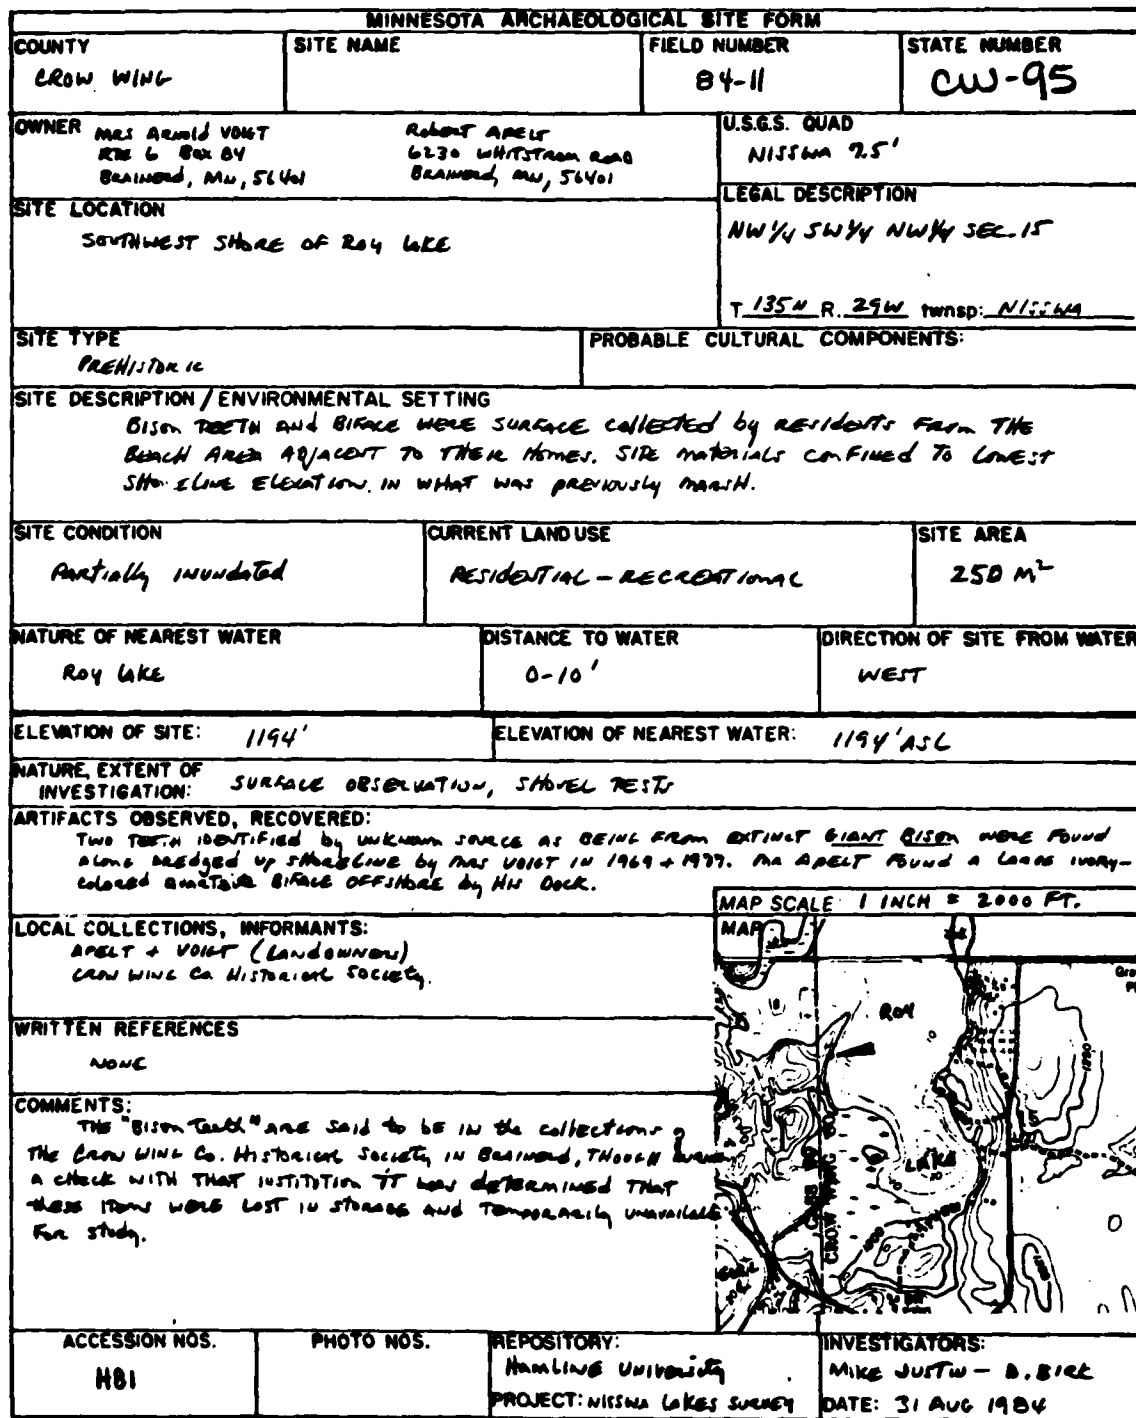 MINNESOTA ARCHAEOLOGICAL SITE FORM
COUNTY
CROW WING
SITE NAME
FIELD NUMBER
84-11
STATE NUMBER
CW-95
OWNER
MRS ARNOLD VOIGT
RTE 6 BOX 84
BRAINERD, MN, 56401
ROBERT APELT
6230 WHITSTROM ROAD
BRAINERD, MN, 56401
U.S.G.S. QUAD
NISSWA 7.5'
SITE LOCATION
SOUTHWEST SHORE OF ROY LAKE
LEGAL DESCRIPTION
NW 1/4 SW 1/4 NW 1/4 SEC. 15
T. 135N R. 29W twnsp: NISSWA
SITE TYPE
PREHISTORIC
PROBABLE CULTURAL COMPONENTS:
SITE DESCRIPTION / ENVIRONMENTAL SETTING
BISON TEETH AND BIFACE WERE SURFACE COLLECTED by RESIDENTS FROM THE
BEACH AREA ADJACENT TO THEIR HOMES. SITE MATERIALS CONFINED TO LOWEST
SHORELINE ELEVATION. IN WHAT WAS PREVIOUSLY MARSH.
SITE CONDITION
PARTIALLY INUNDATED
CURRENT LAND USE
RESIDENTIAL - RECREATIONAL
SITE AREA
250 M²
NATURE OF NEAREST WATER
ROY LAKE
DISTANCE TO WATER
0-10'
DIRECTION OF SITE FROM WATER
WEST
ELEVATION OF SITE: 1194'
ELEVATION OF NEAREST WATER: 1194' ASL
NATURE, EXTENT OF
INVESTIGATION: SURFACE OBSERVATION, SHOVEL TESTS
ARTIFACTS OBSERVED, RECOVERED:
TWO TEETH IDENTIFIED by UNKNOWN SOURCE AS BEING FROM EXTINCT GIANT BISON WERE FOUND
ALONG DREDGED UP SHORELINE by MRS VOIGT IN 1969 + 1977. MR APELT FOUND A LARGE IVORY-
COLORED QUARTZITE BIFACE OFFSHORE by HIS DOCK.
MAP SCALE: 1 INCH = 2000 FT.
LOCAL COLLECTIONS, INFORMANTS:
APELT + VOIGT (LANDOWNERS)
CROW WING CO. HISTORICAL SOCIETY.
MAP
ROY
LAKE
CASS CO
CROW WING CO
WRITTEN REFERENCES
NONE
COMMENTS:
THE "BISON TEETH" ARE SAID to BE IN the collections of
THE CROW WING CO. HISTORICAL SOCIETY IN BRAINERD, THOUGH DURING
A CHECK WITH THAT INSTITUTION IT WAS DETERMINED THAT
THESE ITEMS WERE LOST IN STORAGE AND TEMPORARILY UNAVAILABLE
FOR STUDY.
ACCESSION NOS.
H81
PHOTO NOS.
REPOSITORY:
HAMLINE UNIVERSITY
PROJECT: NISSWA LAKES SURVEY
INVESTIGATORS:
MIKE JUSTIN - D. BIRK
DATE: 31 AUG 1984